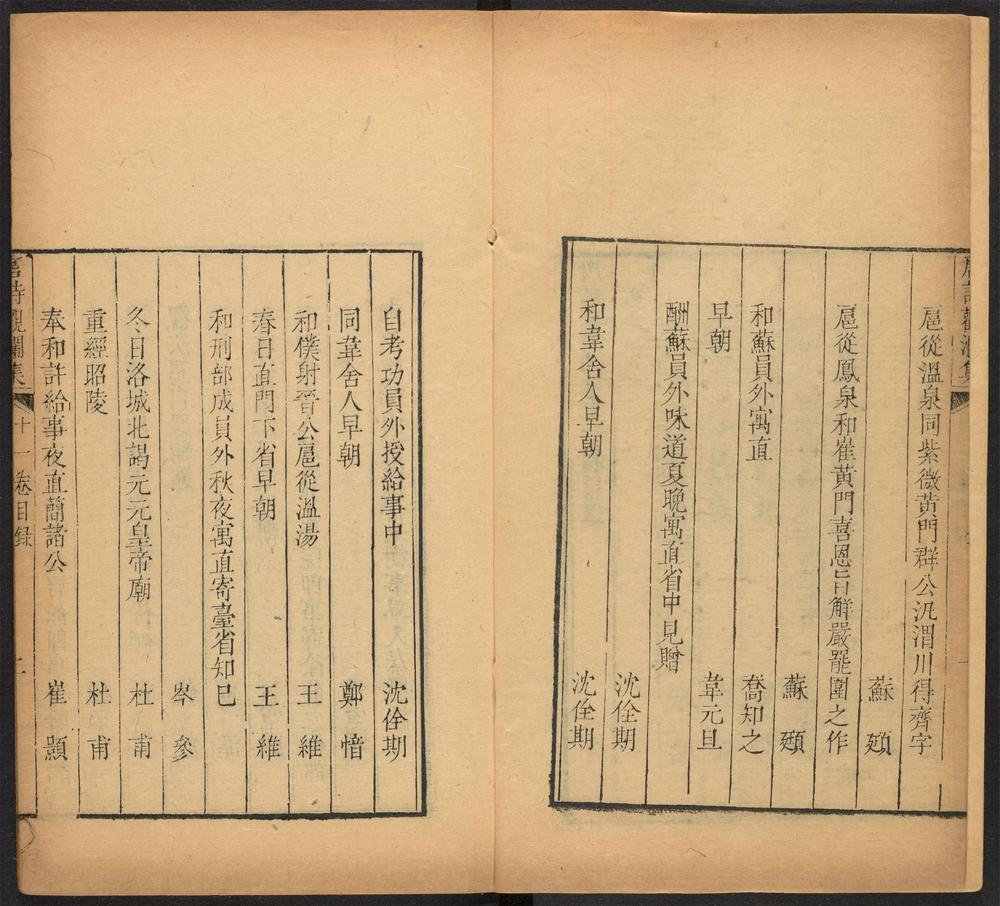 扈從溫泉同紫微黃門群公汎渭川得齊字
蘇頲
扈從鳳泉和崔黃門喜恩旨解嚴罷圍之作
蘇頲
和蘇員外寓直 喬知之
早朝 韋元旦
酬蘇員外味道夏晚寓直省中見贈
沈佺期
和韋舍人早朝 沈佺期
自考功員外授給事中 沈佺期
同韋舍人早朝 鄭愔
和僕射晉公扈從溫湯 王維
春日直門下省早朝 王維
和刑部成員外秋夜寓直寄臺省知已
岑參
冬日洛城北謁元元皇帝廟 杜甫
重經昭陵 杜甫
奉和許給事夜直簡諸公 崔顥
唐詩觀瀾集 十一卷目錄 二